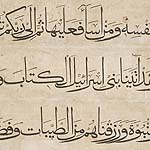 فلنفسه ومن أساء فعليها ثم إلى ربكم تر
قد آتينا بني اسرائيل الكتاب و
لنبوة ورزقناهم من الطيبات وفض